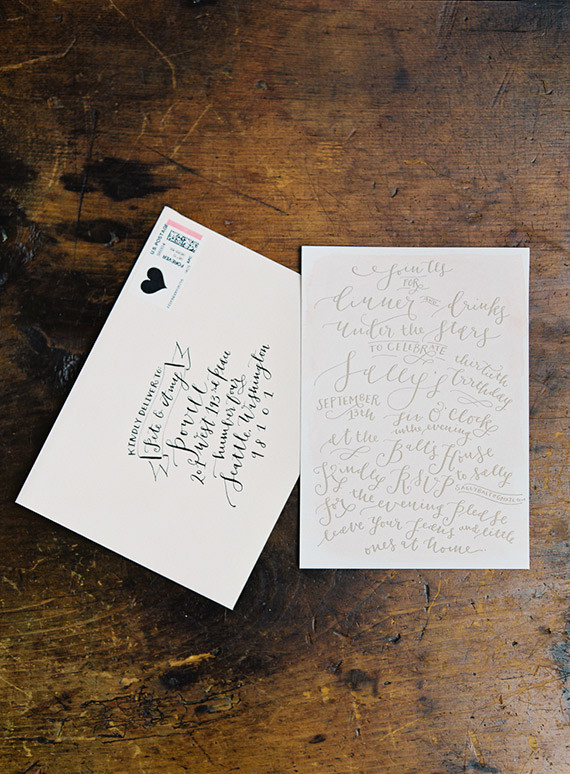 U.S. POSTAGE
KINDLY DELIVER TO
Pete & Amy
Powell
number four
Seattle, Washington
98101
Join Us
FOR
dinner AND drinks
Under the Stars
TO CELEBRATE
Sally's thirtieth birthday
SEPTEMBER 13th
six o'clock
in the evening
at the Ball's House
Kindly RSVP to Sally
for the evening please
leave your jeans and little
ones at home.